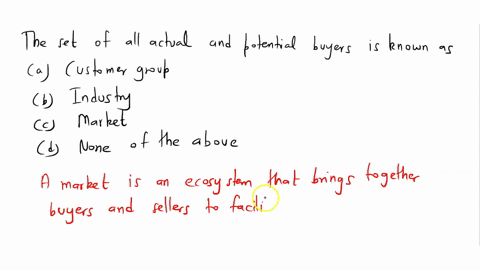 The set of all actual and potential buyers is known as
(a) Customer group
(b) Industry
(c) Market
(d) None of the above
A market is an ecosystem that brings together
buyers and sellers to facili